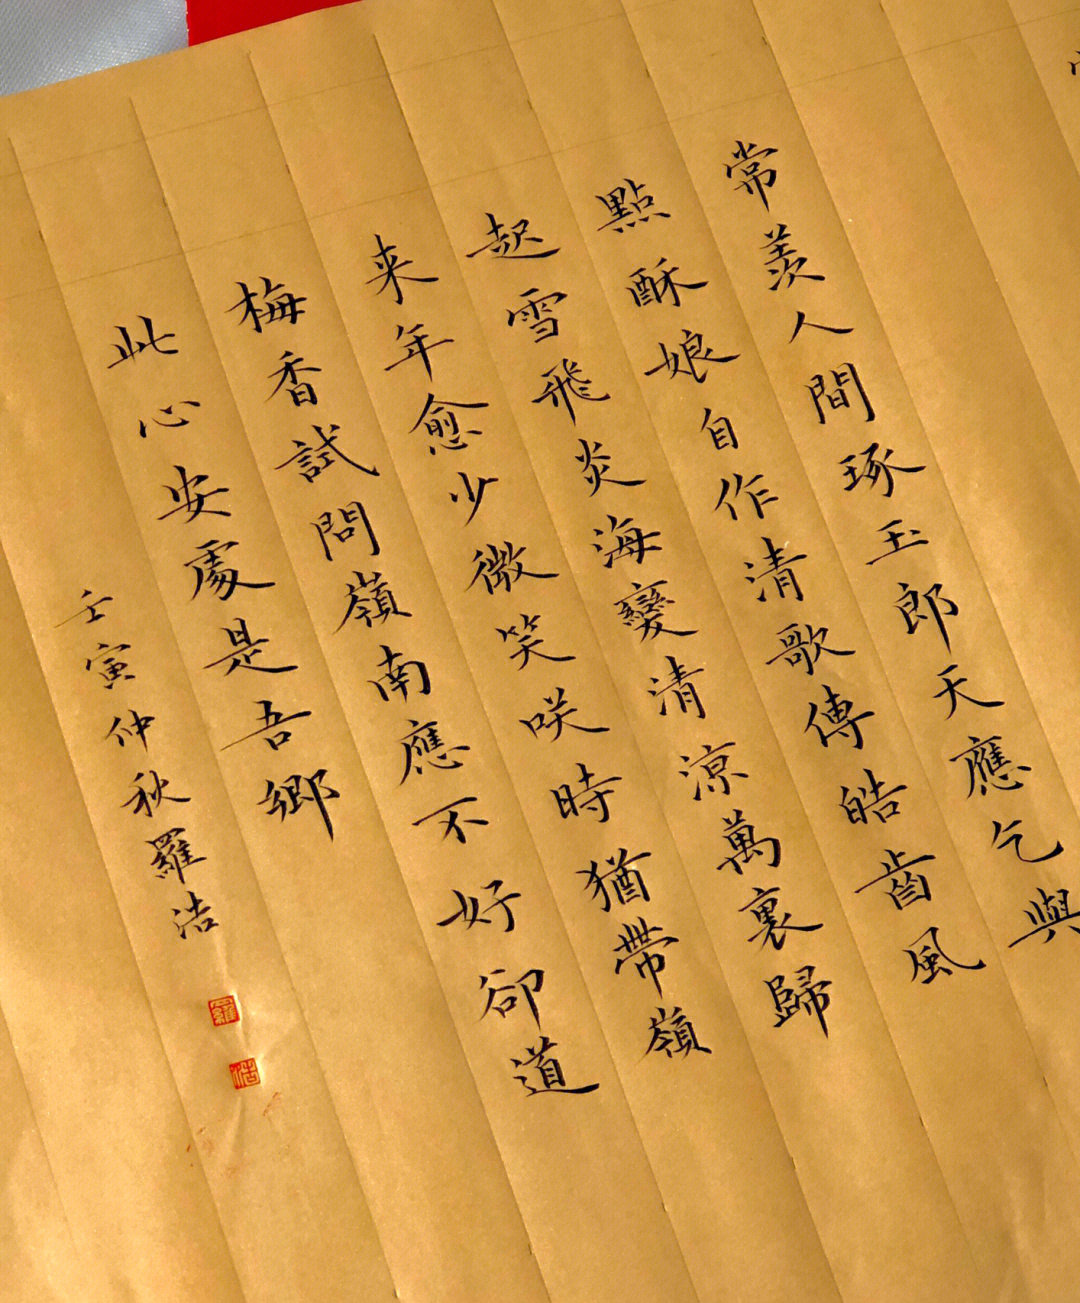 常羨人間琢玉郎天應乞與
點酥娘自作清歌傳皓齒風
起雪飛炎海變清涼萬裏歸
来年愈少微笑咲時猶帶嶺
梅香試問嶺南應不好卻道
此心安處是吾鄉
壬寅仲秋羅浩
羅
浩